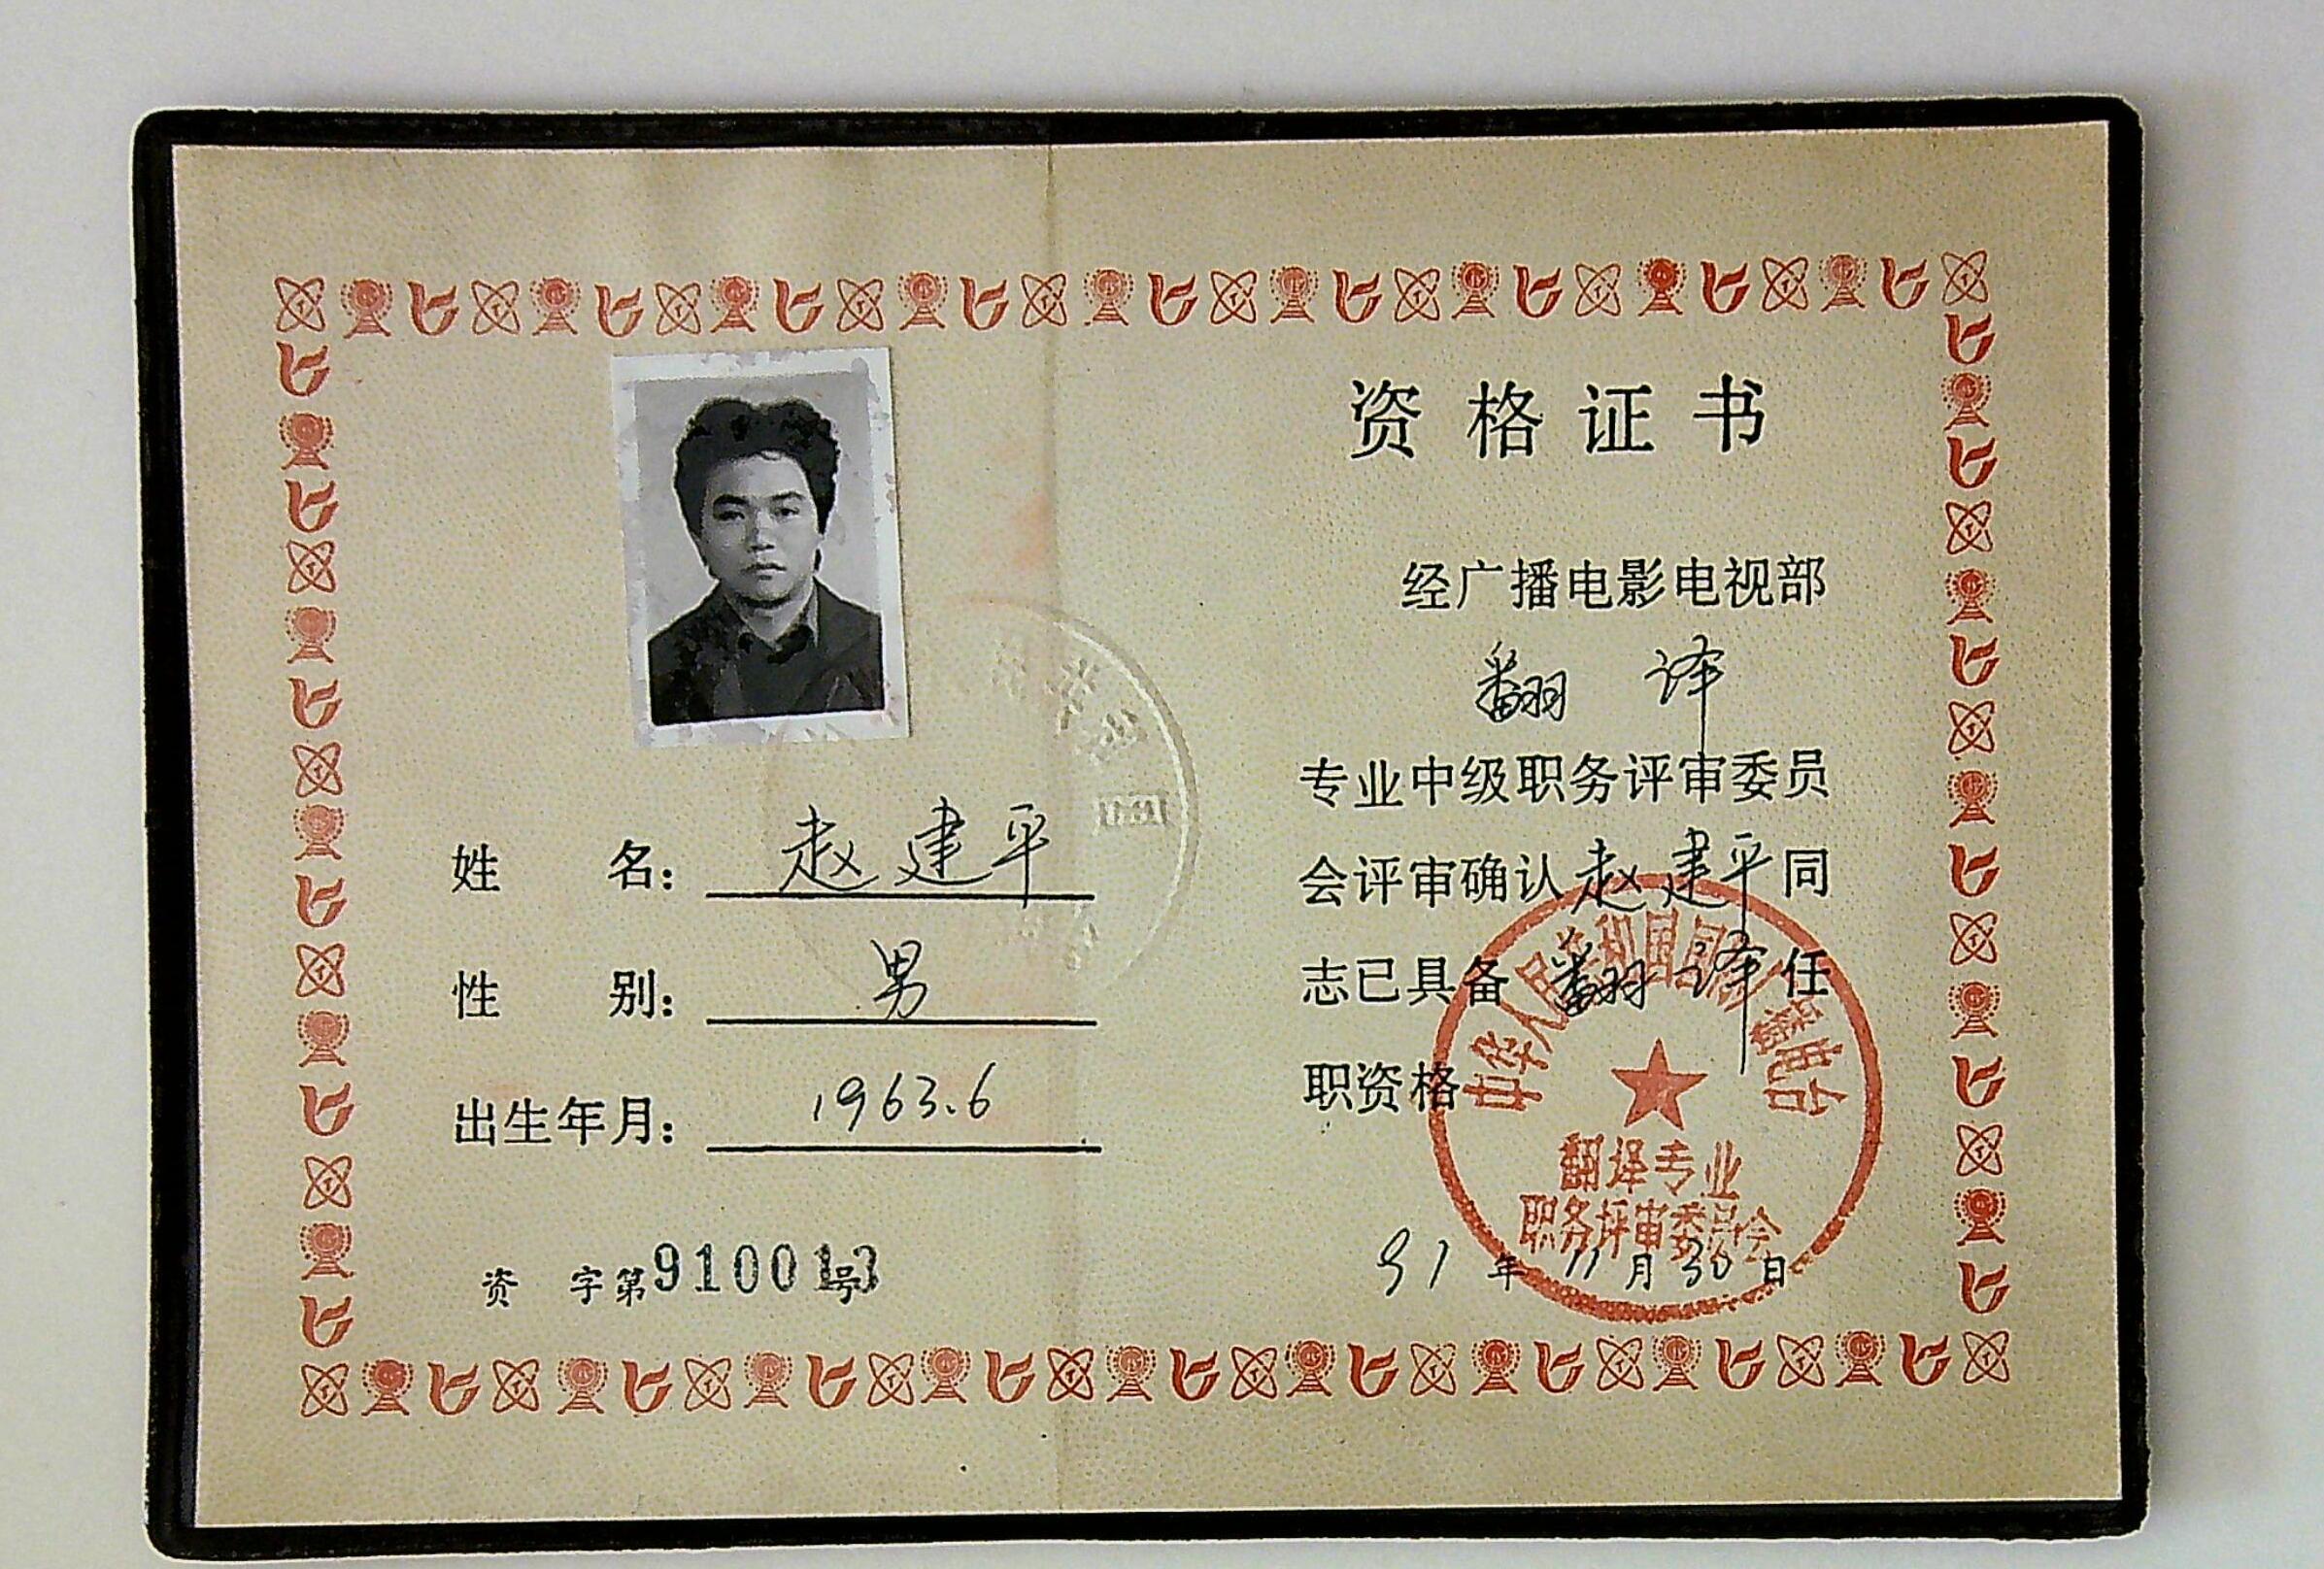 姓 名： 赵建平
性 别： 男
出生年月： 1963.6
资 字第910013号
资格证书
经广播电影电视部
翻 译
专业中级职务评审委员
会评审确认赵建平同
志已具备 翻 译 任
职资格
中华人民共和国国际广播电台
翻译专业
职务评审委员会
91 年 11 月 30 日